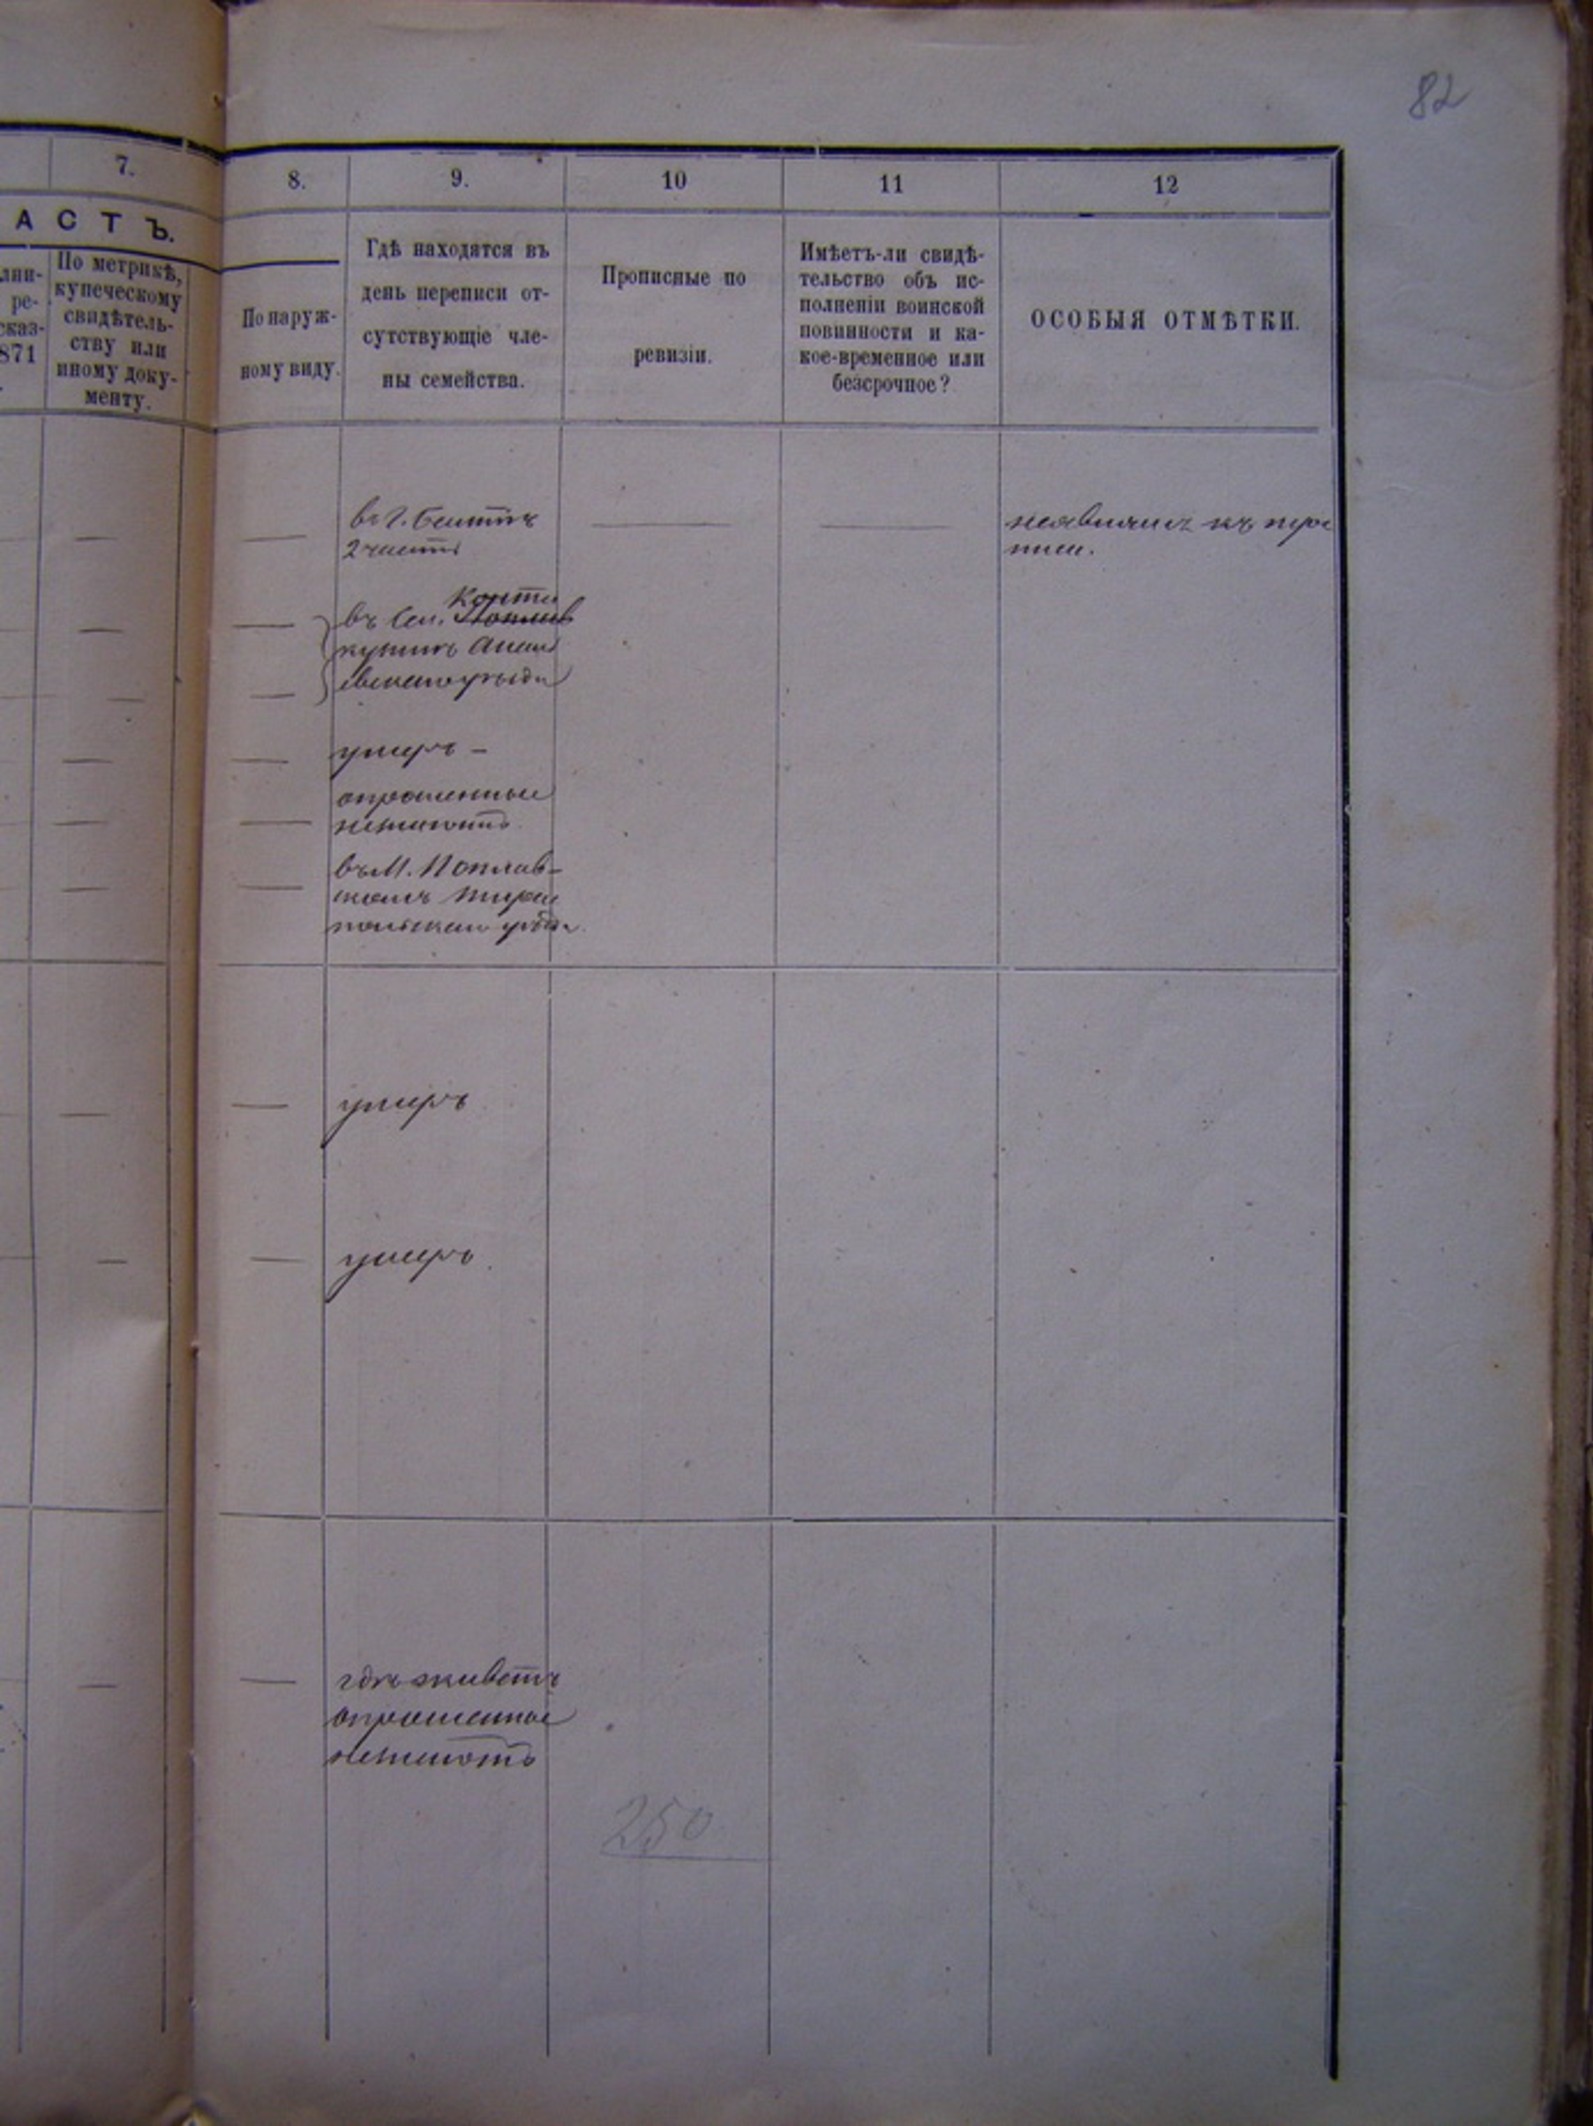 82
7.
8.
9.
10
11
12
АСТЪ.
лни-
ре-
сказ-
871
По метрикѣ,
купеческому
свидѣтель-
ству или
иному доку-
менту.
По наруж-
ному виду.
Гдѣ находятся въ
день переписи от-
сутствующіе чле-
ны семейства.
Прописные по
ревизіи.
Имѣетъ-ли свидѣ-
тельство объ ис-
полненіи воинской
повинности и ка-
кое-временное или
безсрочное?
ОСОБЫЯ ОТМѢТКИ.
въ г.
2 части
неявились къ пере
писи.
въ Сел.
умеръ –
опрошенные
незнаютъ
въ М. Поплав-
скомъ Тирас
польскаго уѣзда
умеръ
умеръ.
гдѣ живетъ
опрошенные
незнаютъ
250